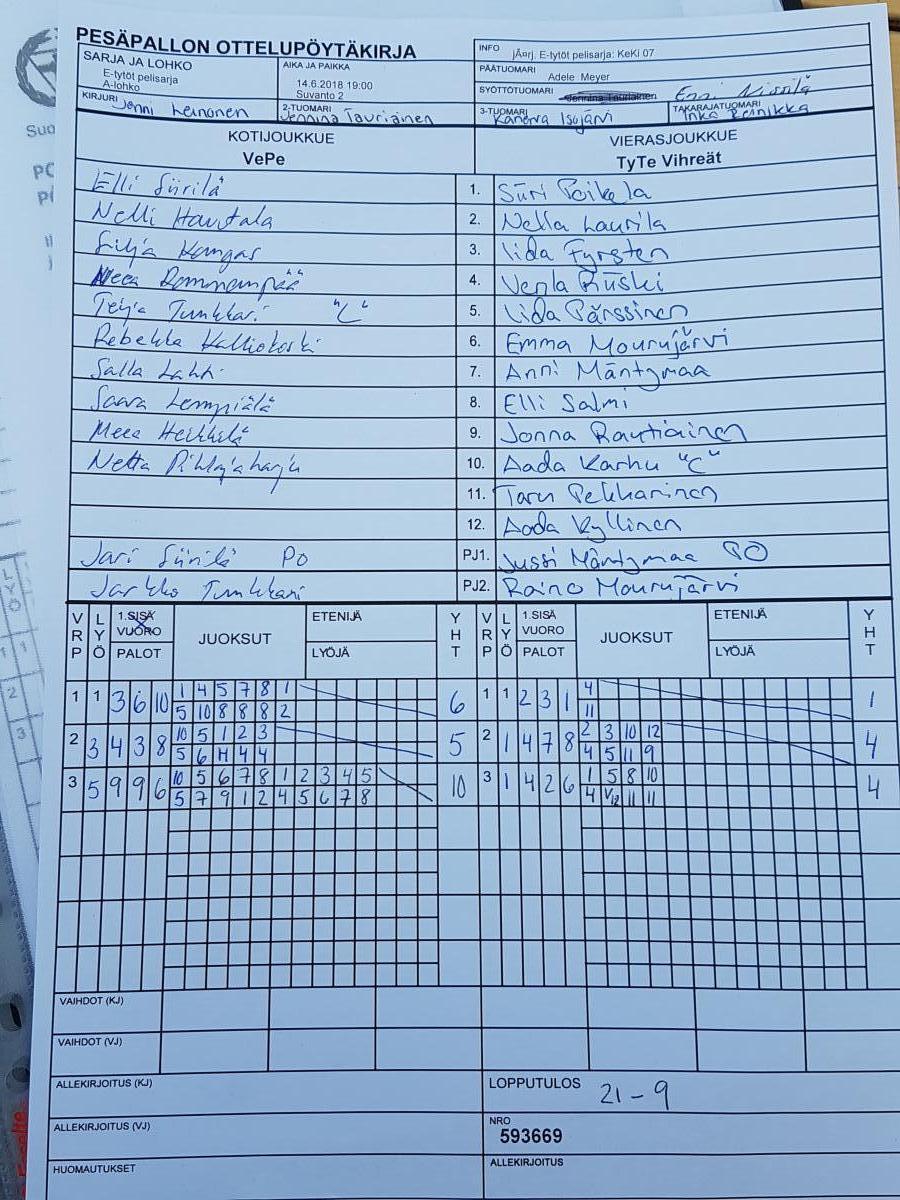 PESÄPALLON OTTELUPÖYTÄKIRJA
SARJA JA LOHKO
E-tytöt pelisarja
A-lohko
AIKA JA PAIKKA
14.6.2018 19:00
Suvanto 2
INFO jÃ¤rj. E-tytöt pelisarja: KeKi 07
PÄÄTUOMARI Adele Meyer
SYÖTTÖTUOMARI Jennina Tauriainen Enni Nissilä
KIRJURI Jonni Leinonen
2-TUOMARI Jennina Tauriainen
3-TUOMARI Kanerva Isojärvi
TAKARAJATUOMARI Inka Reinikka
KOTIJOUKKUE VIERASJOUKKUE
VePe TyTe Vihreät
Elli Siirilä 1. Siiri Poikela
Nelli Hautala 2. Nella Laurila
Silja Kangas 3. Iida Fyrsten
Neea Rommonpää 4. Venla Riiski
Teija Tunkkari "C" 5. Iida Pärssinen
Rebekka Kalliokoski 6. Emma Mourujärvi
Salla Lahti 7. Anni Mäntymaa
Saara Lempiälä 8. Elli Salmi
Meea Heikkilä 9. Jonna Rautiainen
Netta Pihlajaharju 10. Aada Karhu "C"
11. Taru Pekkarinen
12. Aada Kyllinen
Jari Siirilä PO PJ1. Jussi Mäntymaa PO
Jarkko Tunkkari PJ2. Raino Mourujärvi
VRP LYÖ 1.SISÄ VUORO PALOT JUOKSUT ETENIJÄ LYÖJÄ YHT VRP LYÖ 1.SISÄ VUORO PALOT JUOKSUT ETENIJÄ LYÖJÄ YHT
1 1 3 6 10 1 4 5 7 8 1 6 1 1 2 3 1 4 1
5 10 8 8 8 2 11
2 3 4 3 8 10 5 1 2 3 5 2 1 4 7 8 2 3 10 12 4
5 6 H 4 4 4 5 11 9
3 5 9 9 6 10 5 6 7 8 1 2 3 4 5 10 3 1 4 2 6 1 5 8 10 4
5 7 9 1 2 4 5 6 7 8 4 V12 11 11
VAIHDOT (KJ)
VAIHDOT (VJ)
ALLEKIRJOITUS (KJ) LOPPUTULOS 21-9
ALLEKIRJOITUS (VJ) NRO
593669
HUOMAUTUKSET ALLEKIRJOITUS